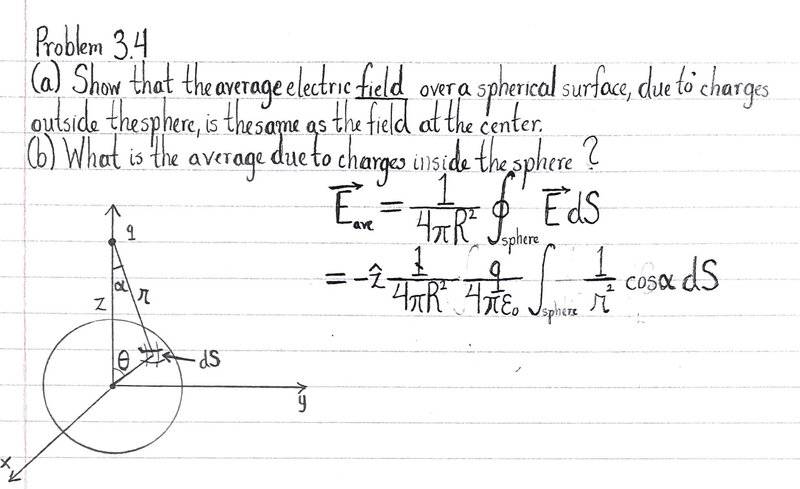 Problem 3.4
(a) Show that the average electric field over a spherical surface, due to charges
outside the sphere, is the same as the field at the center.
(b) What is the average due to charges inside the sphere?
E⃗ave = 1/4πR² ∮sphere E⃗ dS
= -ẑ 1/4πR² q/4πε₀ ∫sphere 1/r² cosα dS
q
α
r
z
θ
dS
y
x